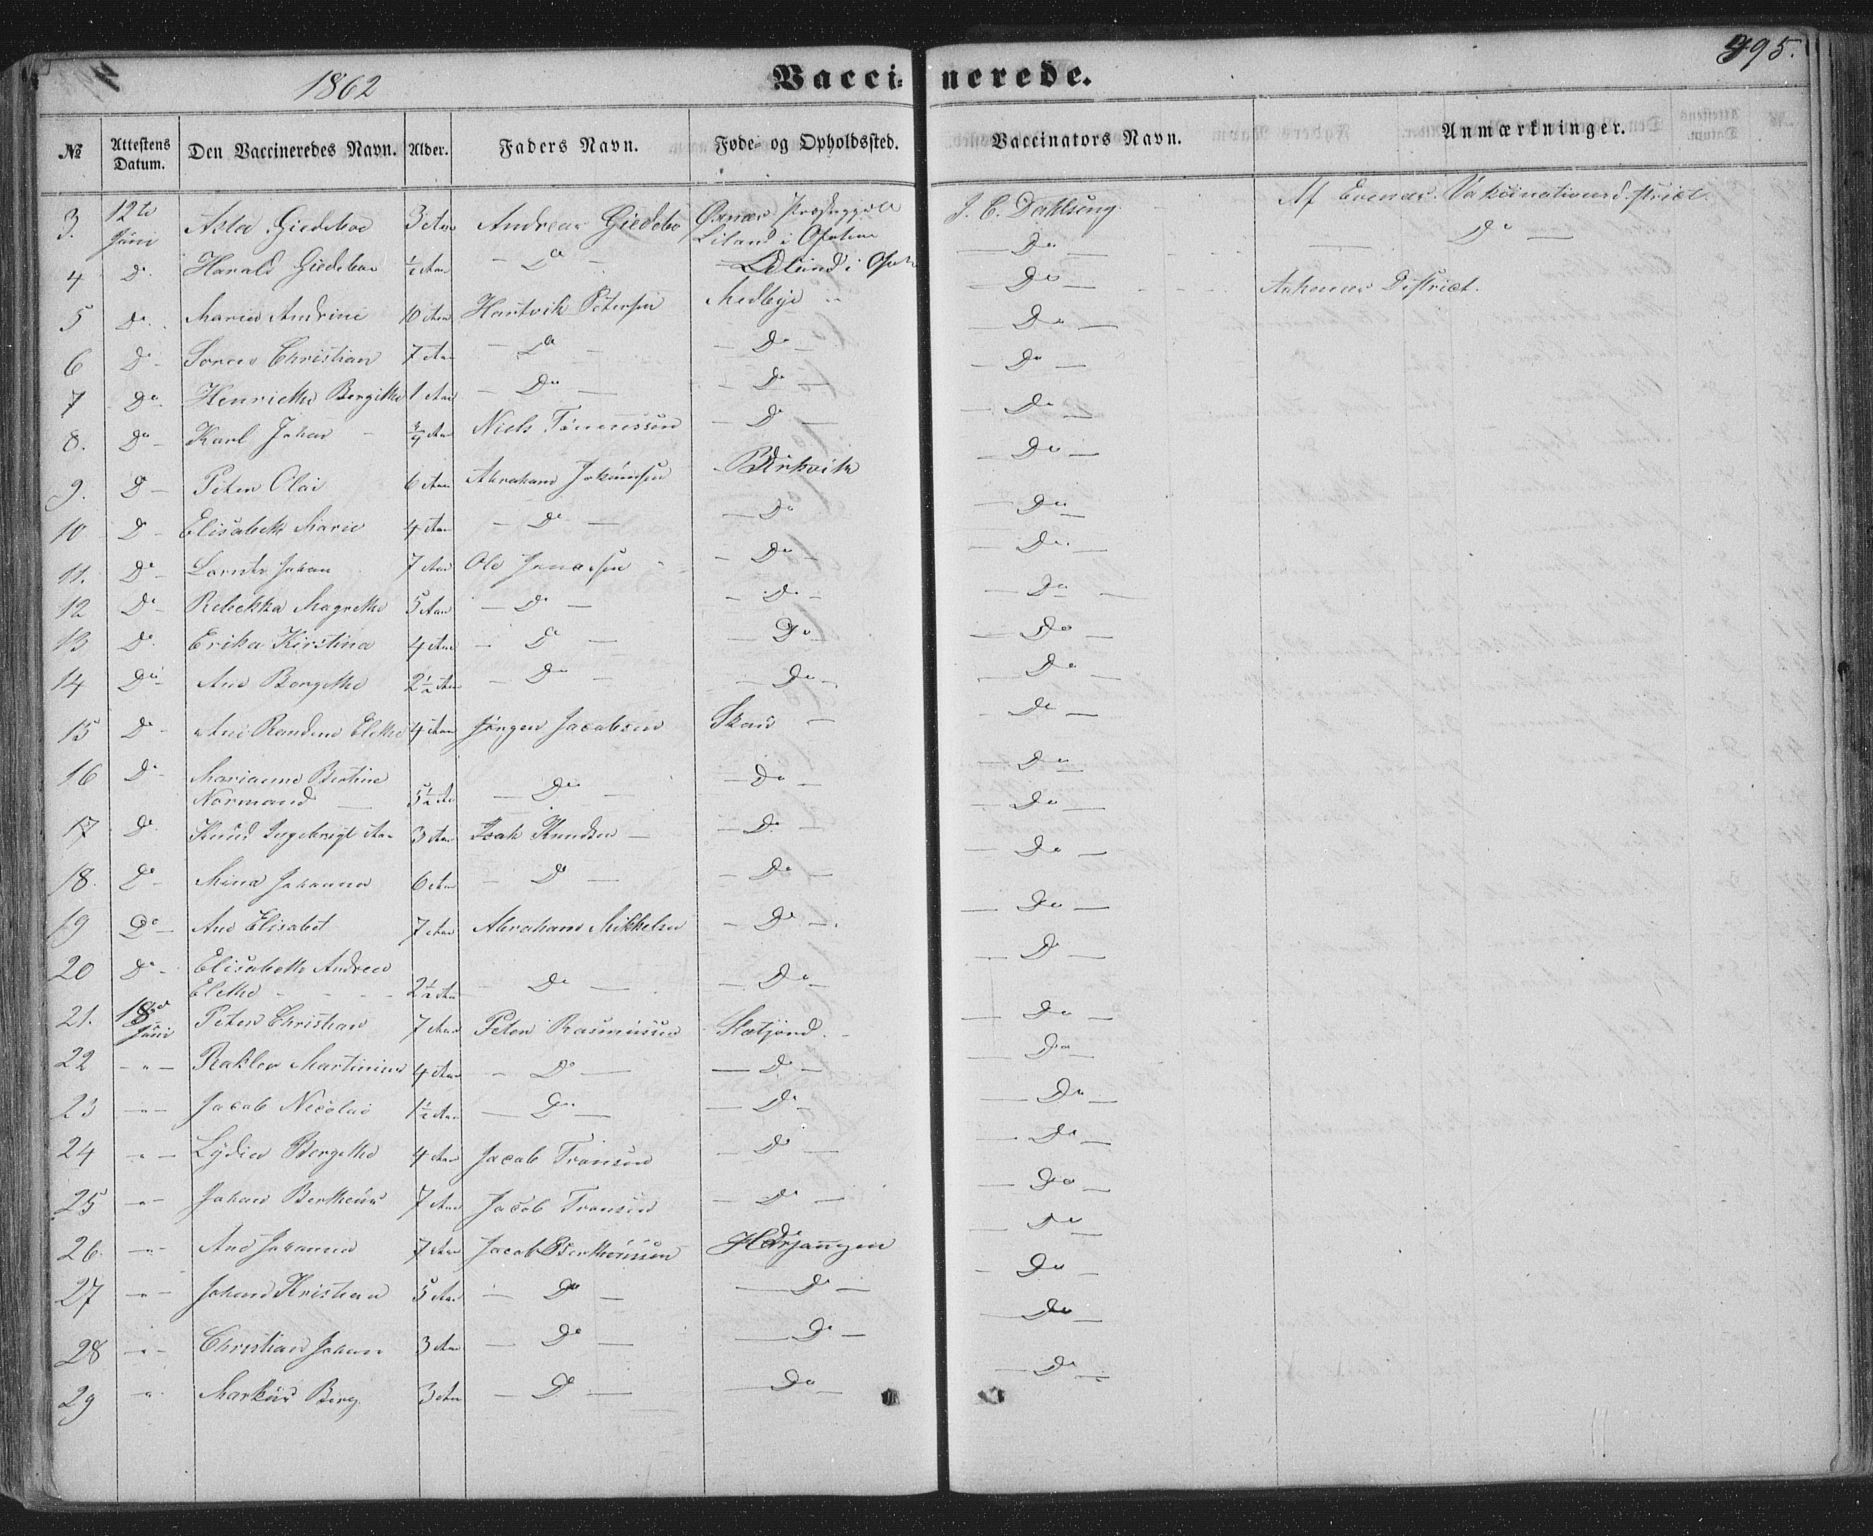 1862 Vaccinerede. 395.
№ Attestens Datum. Den Vaccineredes Navn. Alder. Faders Navn. Føde- og Opholdssted. Vaccinators Navn. Anmærkninger.
3. 12te Juni Asta Giedeboe 3 Aar Andreas Giedebo Liland i Ofoten J. C. Dahlseng Af Evenæs Vakcinationsdistrict
4 Do Harald Giedeboe ½ Aar — Do — Liland i Ofoten — Do — — Do —
5 Do Maria Andrine 10 Aar Hartvik Petersen Medbye — Do — Ankenæs District
6 Do Søren Christian 7 Aar — Do — — Do — — Do —
7 Do Henriette Bergitte 1 Aar — Do — — Do — — Do —
8. Do Karl Johan ¾ Aar Niels Tønnessen — Do — — Do —
9. Do Peter Olai 6 Aar Abraham Johansen Birkvik — Do —
10 Do Elisabeth Marie 4 Aar — Do — — Do — — Do —
11. Do Lorents Johan 7 Aar Ole Jonassen — Do — — Do —
12 Do Rebekka Magrethe 5 Aar — Do — — Do — — Do —
13 Do Erika Kirstina 4 Aar — Do — — Do — — Do —
14 Do Ane Bergitte 2½ Aar — Do — — Do — — Do —
15 Do Ane Randine Elethe 4 Aar Jørgen Jacobsen — Do —
16 Do Marianne Bertine
Normand 5½ Aar — Do — — Do — — Do —
17 Do Knud Ingebrigt 3 Aar Isak Knudsen — Do — — Do —
18. Do Mina Johanna 6 Aar — Do — — Do — — Do —
19 Do Ane Elisabet 7 Aar Abraham Mikkelsen — Do — — Do —
20 Do Elisabeth Andrea
Elethe 2½ Aar — Do — — Do — — Do —
21. 18de Juni Peter Christian 7 Aar Peter Rasmussen — Do —
22 — " — Martinine 4 Aar — Do — — Do — — Do —
23 — " — Jacob Nicolai 1½ Aar — Do — — Do — — Do —
24 — " — Lydia Bergitte 4 Aar Jacob Tronsen — Do — — Do —
25 — " — Johan Bertheus 7 Aar Jacob Tronsen — Do — — Do —
26. — " — Ane Johanna 7 Aar Jacob Bertheussen Herjangen — Do —
27 — " — Johan Kristian 5 Aar — Do — — Do — — Do —
28 — " — Christian Johan 3 Aar — Do — — Do — — Do —
29 " Markus Berg 3 Aar — Do — — Do — — Do —